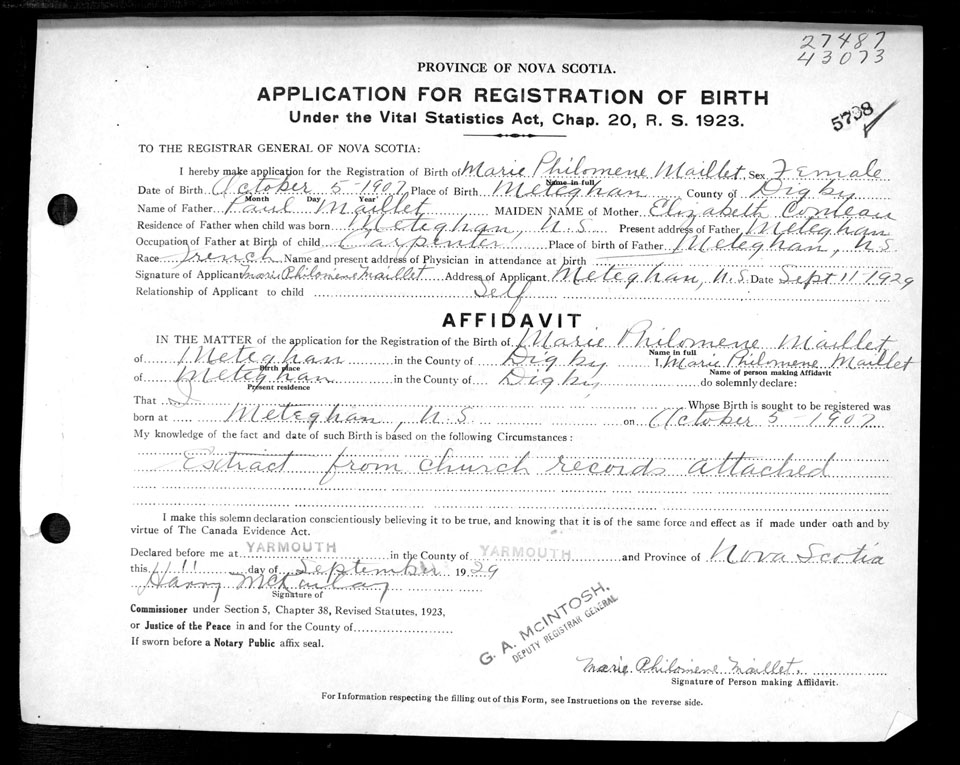 27487
43073
PROVINCE OF NOVA SCOTIA.
APPLICATION FOR REGISTRATION OF BIRTH
Under the Vital Statistics Act, Chap. 20, R. S. 1923.
5798
TO THE REGISTRAR GENERAL OF NOVA SCOTIA:
I hereby make application for the Registration of Birth of Marie Philomene Maillet Sex Female
Name in full
Date of Birth October 5-1907 Place of Birth Meteghan County of Digby
Month Day Year
Name of Father Paul Maillet MAIDEN NAME of Mother Elizabeth Comeau
Residence of Father when child was born Meteghan, N.S. Present address of Father, Meteghan
Occupation of Father at Birth of child Carpenter Place of birth of Father Meteghan, N.S
Race French Name and present address of Physician in attendance at birth
Signature of Applicant Marie Philomene Maillet Address of Applicant Meteghan, N.S. Date Sept 11 1929
Relationship of Applicant to child Self
AFFIDAVIT
IN THE MATTER of the application for the Registration of the Birth of Marie Philomene Maillet
Name in full
of Meteghan in the County of Digby I, Marie Philomene Maillet
Birth place Name of person making Affidavit
of Meteghan in the County of Digby do solemnly declare:
Present residence
That I Whose Birth is sought to be registered was
born at Meteghan, N.S. on October 5 - 1907
My knowledge of the fact and date of such Birth is based on the following Circumstances:
Extract from church records attached
I make this solemn declaration conscientiously believing it to be true, and knowing that it is of the same force and effect as if made under oath and by
virtue of The Canada Evidence Act.
Declared before me at YARMOUTH in the County of YARMOUTH and Province of Nova Scotia
this 11 day of September 1929
Harry
Signature of
Commissioner under Section 5, Chapter 38, Revised Statutes, 1923,
or Justice of the Peace in and for the County of
If sworn before a Notary Public affix seal.
G. A. MCINTOSH,
DEPUTY REGISTRAR GENERAL
Marie Philomene Maillet.
Signature of Person making Affidavit.
For Information respecting the filling out of this Form, see Instructions on the reverse side.